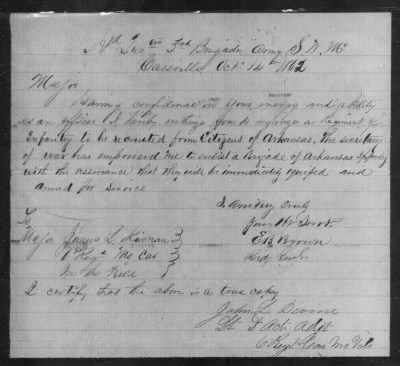 Hd Qurs 3rd Brigade Army S. W. Mo
Cassville Oct. 14th 1862
Major
Having confidence in your energy and ability
as an officer I hereby authorize you to organize a Regiment of
Infantry to be recruited from Citizens of Arkansas. The secretary
of war has empowered me to enlist a Brigade of Arkansas Infantry
with the assurance that they will be immediately equiped and
armed for service
I am very truly
Your Obt Servt
E B Brown
Brig Genl
To
Major James
1st Regt Mo Cav
I certify that the above is a true copy
John L
Lt & Act Adjt
Regt Cav Mo Vols